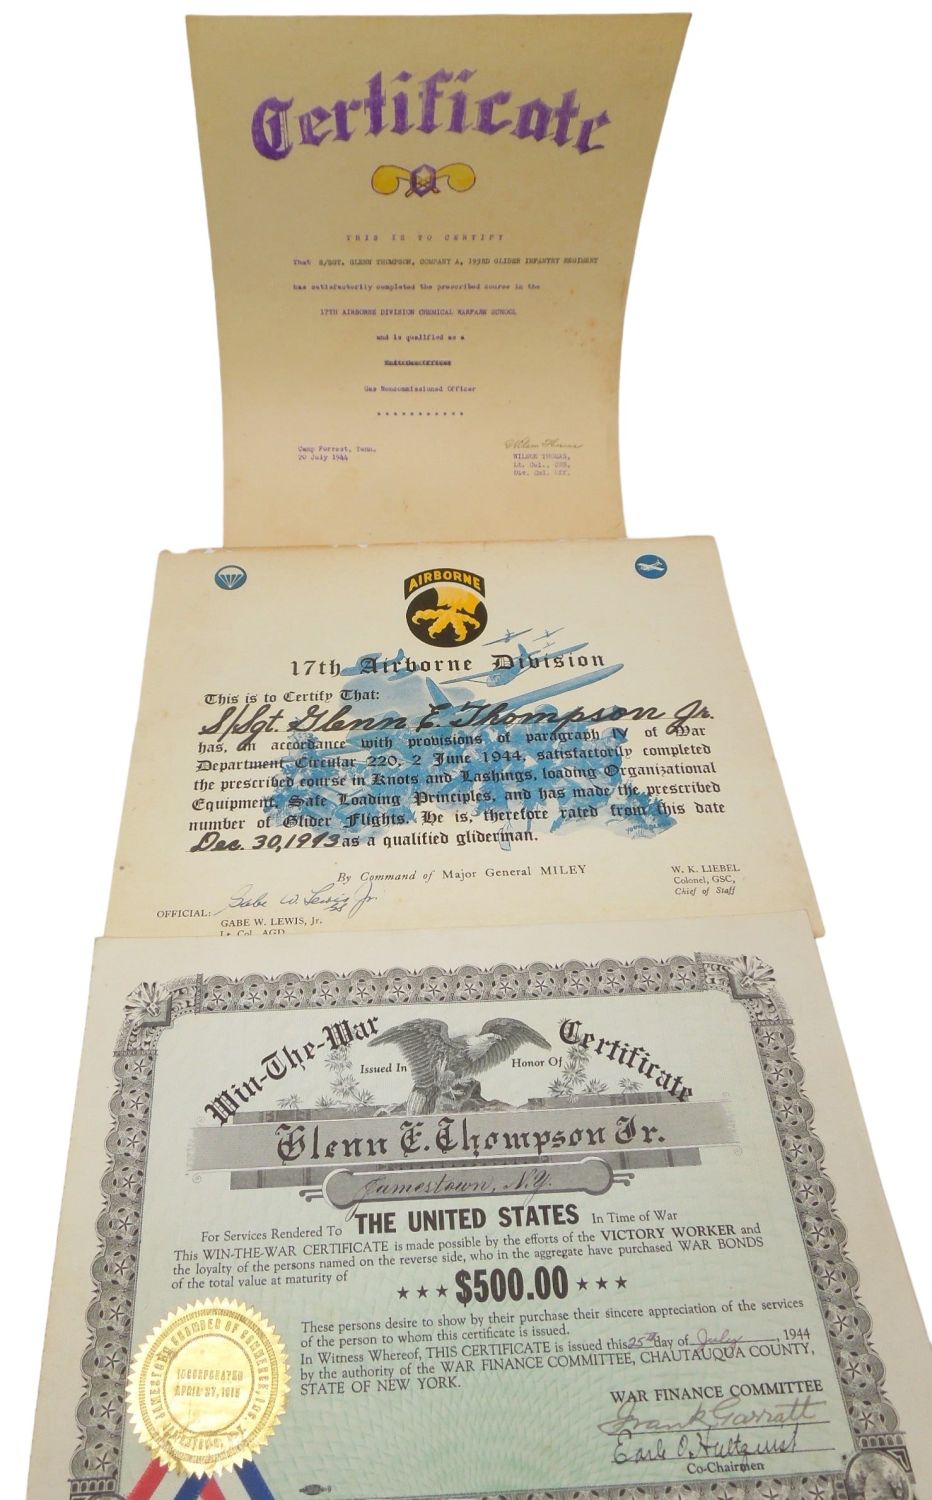 Certificate
THIS IS TO CERTIFY
That S/SGT. GLENN THOMPSON, COMPANY A, 193RD GLIDER INFANTRY REGIMENT
has satisfactorily completed the prescribed course in the
17TH AIRBORNE DIVISION CHEMICAL WARFARE SCHOOL
and is qualified as a
Gas Noncommissioned Officer
* * * * * * * * * * *
Camp Forrest, Tenn.
20 July 1944
Wilson Thomas
WILSON THOMAS,
Lt. Col., CWS,
Div. Cml. Off.
AIRBORNE
17th Airborne Division
This is to Certify That:
S/Sgt. Glenn E. Thompson Jr.
has, in accordance with provisions of paragraph IV of War
Department Circular 220, 2 June 1944, satisfactorily completed
the prescribed course in Knots and Lashings, loading Organizational
Equipment, Safe Loading Principles, and has made the prescribed
number of Glider Flights. He is, therefore rated from this date
Dec. 30, 1943 as a qualified gliderman.
By Command of Major General MILEY
W. K. LIEBEL
Colonel, GSC,
Chief of Staff
OFFICIAL: Gabe W. Lewis Jr.
GABE W. LEWIS, Jr.
Lt. Col. AGD
Win-The-War Certificate
Issued In Honor Of
Glenn E. Thompson Jr.
Jamestown, N.Y.
For Services Rendered To THE UNITED STATES In Time of War
This WIN-THE-WAR CERTIFICATE is made possible by the efforts of the VICTORY WORKER and
the loyalty of the persons named on the reverse side, who in the aggregate have purchased WAR BONDS
of the total value at maturity of
★ ★ ★ $500.00 ★ ★ ★
These persons desire to show by their purchase their sincere appreciation of the services
of the person to whom this certificate is issued.
In Witness Whereof, THIS CERTIFICATE is issued this 25th day of July, 1944
by the authority of the WAR FINANCE COMMITTEE, CHAUTAUQUA COUNTY,
STATE OF NEW YORK.
WAR FINANCE COMMITTEE
Frank Garratt
Earle O. Hultquist
Co-Chairmen
JAMESTOWN CHAMBER OF COMMERCE, INC.
INCORPORATED
APRIL 27, 1915
JAMESTOWN, N.Y.